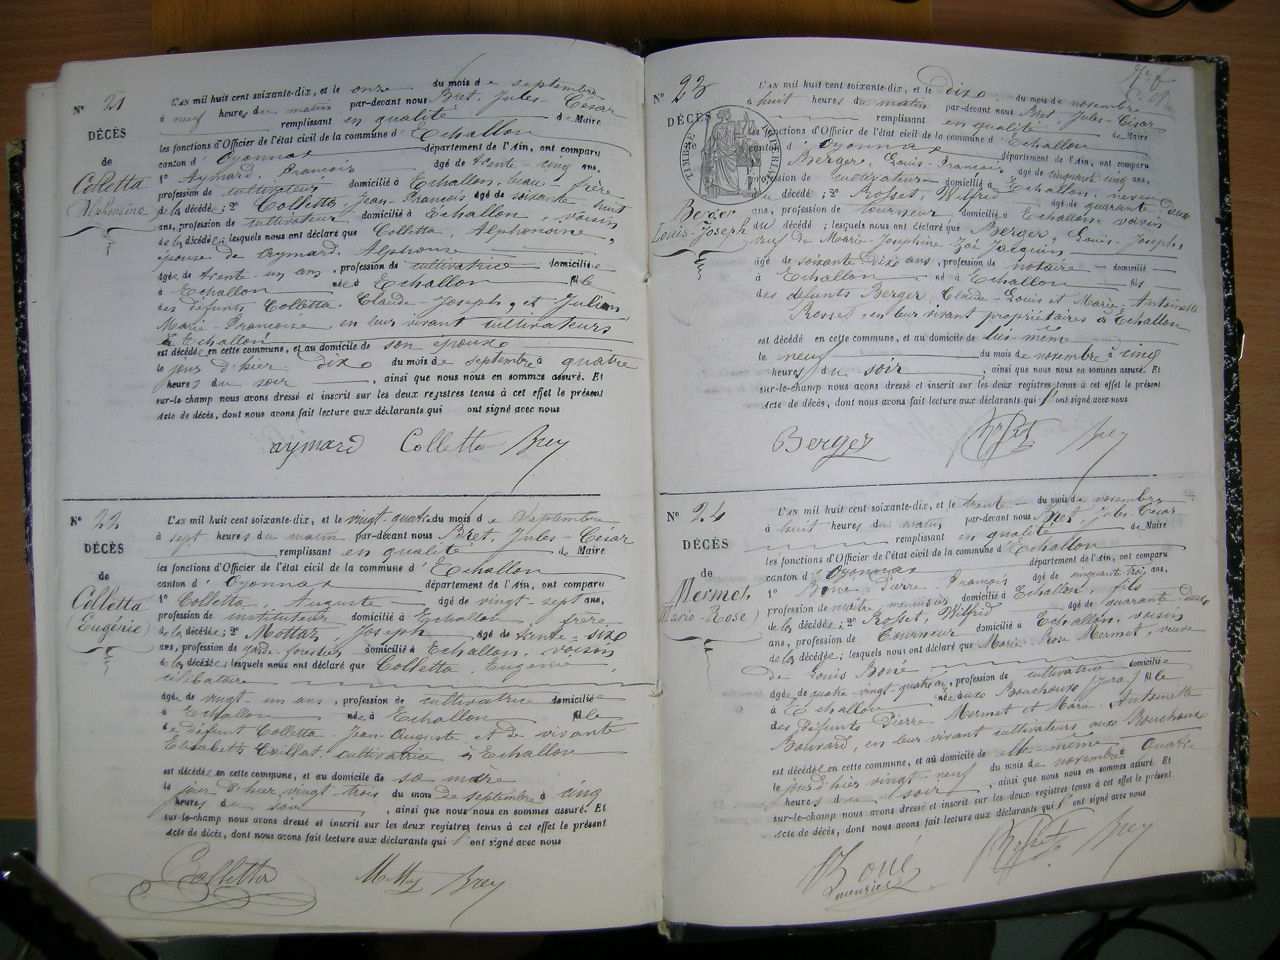 N° 21
DÉCÈS
de
Colletta
Alphonsine
L'AN mil huit cent soixante-dix, et le onze du mois de septembre
à neuf heures du matin par-devant nous Bret, Jules-César
remplissant en qualité de Maire
les fonctions d'Officier de l'état civil de la commune d'Echallon
canton d'Oyonnax département de l'Ain, ont comparu
1° Aymard, François âgé de trente-cinq ans,
profession de cultivateur domicilié à Echallon, beau-frère
de la décédée; 2° Colletta, Jean-François âgé de soixante huit
ans, profession de cultivateur domicilié à Echallon, voisin
de la décédée; lesquels nous ont déclaré que Colletta, Alphonsine,
épouse de Aymard, Alphonse
âgée de trente-un ans, profession de cultivatrice domiciliée
à Echallon née à Echallon fille
des défunts Colletta, Claude-Joseph, et Julien
Marie-Françoise, en leur vivant cultivateurs
à Echallon
est décédée en cette commune, et au domicile de son époux
le jour d'hier dix du mois de septembre à quatre
heures du soir, ainsi que nous nous en sommes assuré. Et
sur-le-champ nous avons dressé et inscrit sur les deux registres tenus à cet effet le présent
acte de décès, dont nous avons fait lecture aux déclarants qui ont signé avec nous
aymard Colletta Brey
N° 22
DÉCÈS
de
Colletta
(Eugénie)
L'AN mil huit cent soixante-dix, et le vingt-quatre du mois de Septembre
à sept heures du matin par-devant nous Bret, Jules-César
remplissant en qualité de Maire
les fonctions d'Officier de l'état civil de la commune d'Echallon
canton d'Oyonnax département de l'Ain, ont comparu
1° Colletta, Auguste âgé de vingt-sept ans,
profession de instituteur domicilié à Echallon, frère
de la décédée; 2° Mottaz, Joseph âgé de trente-six
ans, profession de garde forestier domicilié à Echallon, voisin
de la décédée; lesquels nous ont déclaré que Colletta, Eugénie,
célibataire
âgée de vingt-un ans, profession de cultivatrice domiciliée
à Echallon née à Echallon fille
de défunt Colletta, Jean-Auguste et de vivante
Elisabeth cultivatrice à Echallon
est décédée en cette commune, et au domicile de sa mère
le jour d'hier vingt-trois du mois de septembre à cinq
heures du soir, ainsi que nous nous en sommes assuré. Et
sur-le-champ nous avons dressé et inscrit sur les deux registres tenus à cet effet le présent
acte de décès, dont nous avons fait lecture aux déclarants qui l'ont signé avec nous
Colletta Brey
N° 23
DÉCÈS
de
TIMBRE
Berger
Louis-Joseph
L'AN mil huit cent soixante-dix, et le dix du mois de novembre
à huit heures du matin par-devant nous Bret, Jules-César
remplissant en qualité de Maire
les fonctions d'Officier de l'état civil de la commune d'Echallon
canton d'Oyonnax département de l'Ain, ont comparu
Berger, Louis-François âgé de cinquante cinq ans,
profession de cultivateur domicilié à Echallon, neveu
du décédé; 2° Rosset, Wilfrid âgé de quarante deux
ans, profession de tourneur domicilié à Echallon voisin
du décédé; lesquels nous ont déclaré que Berger, Louis-Joseph,
veuf de Marie-Joséphine-Zoé Jacquin
âgé de soixante dix ans, profession de notaire domicilié
à Echallon né à Echallon fils
des défunts Berger, Claude-Louis et Marie-Antoinette
Rosset, en leur vivant propriétaires à Echallon
est décédé en cette commune, et au domicile de lui-même
le neuf du mois de novembre à cinq
heures du soir, ainsi que nous nous en sommes assuré. Et
sur-le-champ nous avons dressé et inscrit sur les deux registres tenus à cet effet le présent
acte de décès, dont nous avons fait lecture aux déclarants qui l'ont signé avec nous
Berger Rosset Brey
N° 24
DÉCÈS
de
Mermet
(Marie-Rose)
L'AN mil huit cent soixante-dix, et le trente du mois de novembre
à huit heures du matin par-devant nous Bret, Jules-César
remplissant en qualité de Maire
les fonctions d'Officier de l'état civil de la commune d'Echallon
canton d'Oyonnax département de l'Ain, ont comparu
1° Boné Pierre-François âgé de cinquante trois ans,
profession de maître menuisier domicilié à Echallon, fils
de la décédée; 2° Rosset, Wilfrid âgé de quarante deux
ans, profession de Tourneur domicilié à Echallon, voisin
de la décédée; lesquels nous ont déclaré que Marie-Rose Mermet, veuve
de Louis Boné
âgée de quatre-vingt-quatre ans, profession de cultivateur domiciliée
à Echallon née aux Bouchoux (Jura) fille
des défunts Pierre Mermet et Marie-Antoinette
Bouvard, en leur vivant cultivateurs aux Bouchoux
est décédée en cette commune, et au domicile de elle-même
le jour d'hier vingt-neuf du mois de novembre à quatre
heures du soir, ainsi que nous nous en sommes assuré. Et
sur-le-champ nous avons dressé et inscrit sur les deux registres tenus à cet effet le présent
acte de décès, dont nous avons fait lecture aux déclarants qui l'ont signé avec nous
Boné Rosset Brey
menuisier